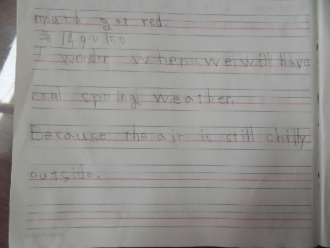 mouth got red.
I wonder when we will have
real spring weather.
Because the air is still chilly
outside.